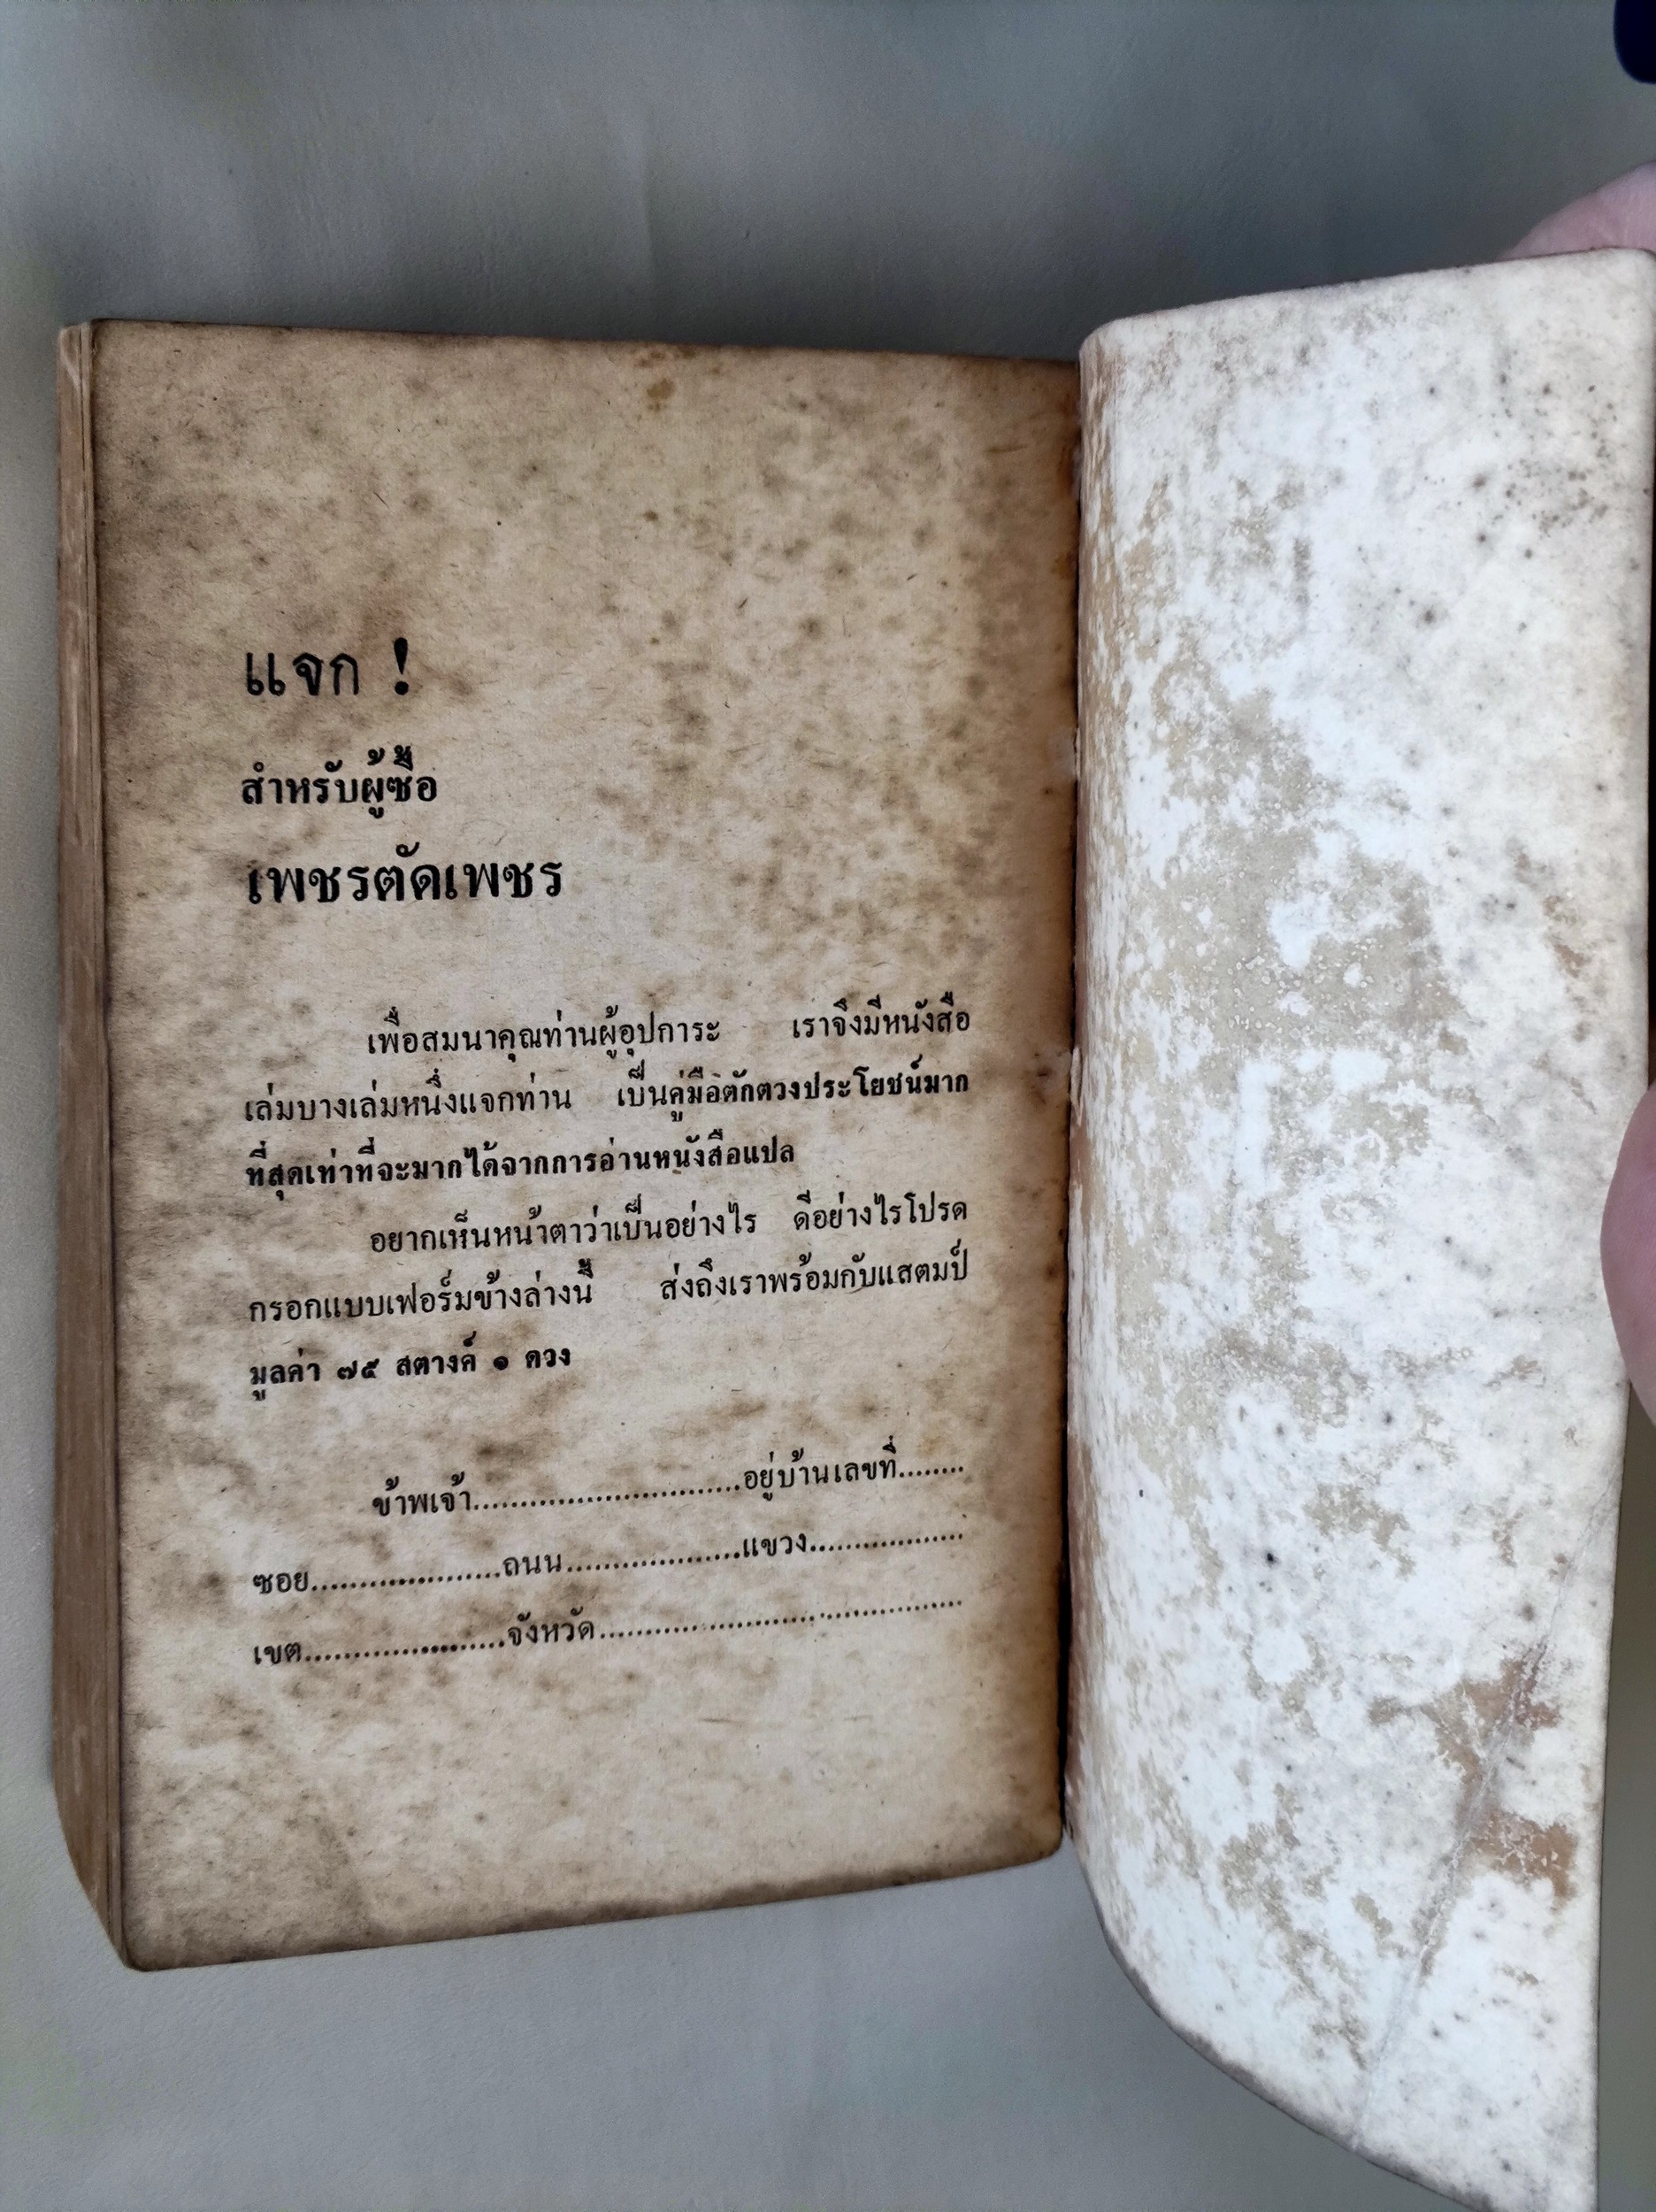 แจก !
สำหรับผู้ซื้อ
เพชรตัดเพชร
เพื่อสมนาคุณท่านผู้อุปการะ เราจึงมีหนังสือ
เล่มบางเล่มหนึ่งแจกท่าน เป็นคู่มือตักตวงประโยชน์มาก
ที่สุดเท่าที่จะมากได้จากการอ่านหนังสือแปล
อยากเห็นหน้าตาว่าเป็นอย่างไร ดีอย่างไรโปรด
กรอกแบบเฟอร์มข้างล่างนี้ ส่งถึงเราพร้อมกับแสตมป์
มูลค่า ๗๕ สตางค์ ๑ ดวง
ข้าพเจ้า............................อยู่บ้านเลขที่........
ซอย....................ถนน..................แขวง................
เขต.....................จังหวัด......................................